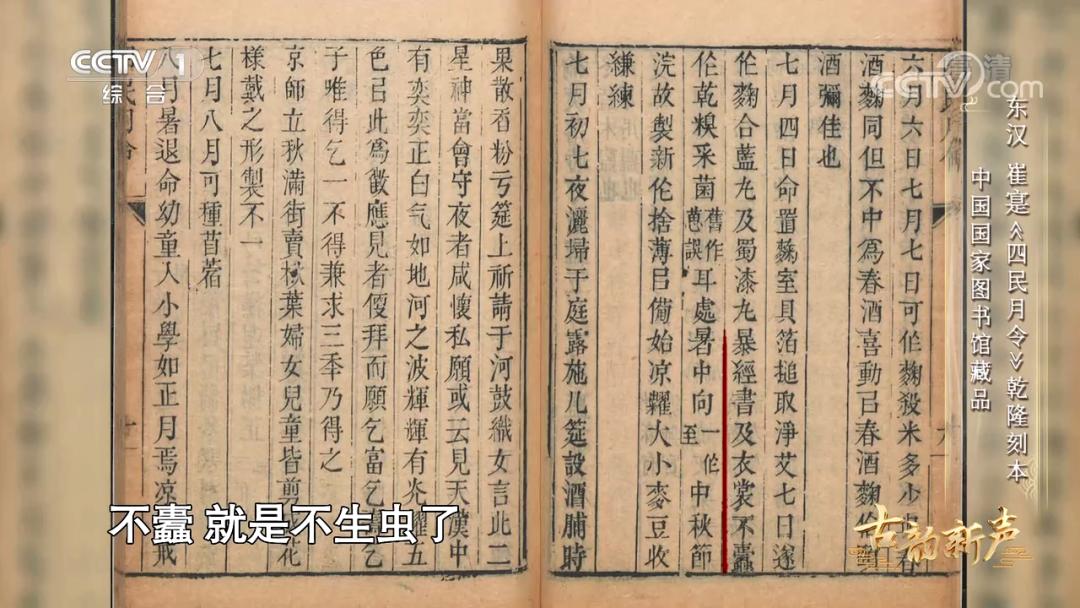 CCTV 1
综合
CCTV.com
高清
东汉 崔寔《四民月令》乾隆刻本
中国国家图书馆藏品
六月六日七月七日可作麴殺米多少
酒麴同但不中為春酒喜動㠯春酒麴
酒彌佳也
七月四日命置麴室具箔搥取淨艾七日遂
作麴合藍丸及蜀漆丸暴經書及衣裳不蠹
作乾糗采菌舊作葸誤耳處暑中向一作至中秋節
浣故製新作捨薄㠯備始凉糶大小麥豆收
縑練
七月初七夜灑埽于庭露施几筵設酒脯時
果散香粉于筵上祈請于河鼓織女言此二
星神當會守夜者咸懷私願或云見天漢中
有奕奕正白气如地河之波輝有光耀五
色㠯此為徵應見者便拜而願乞富乞
子唯得乞一不得兼求三年乃得之
京師立秋滿街賣楸葉婦女兒童皆剪花
樣戴之形製不一
七月八月可種苜蓿
八月暑退命幼童入小學如正月焉凉戒
不蠹 就是不生虫了
古韵新声